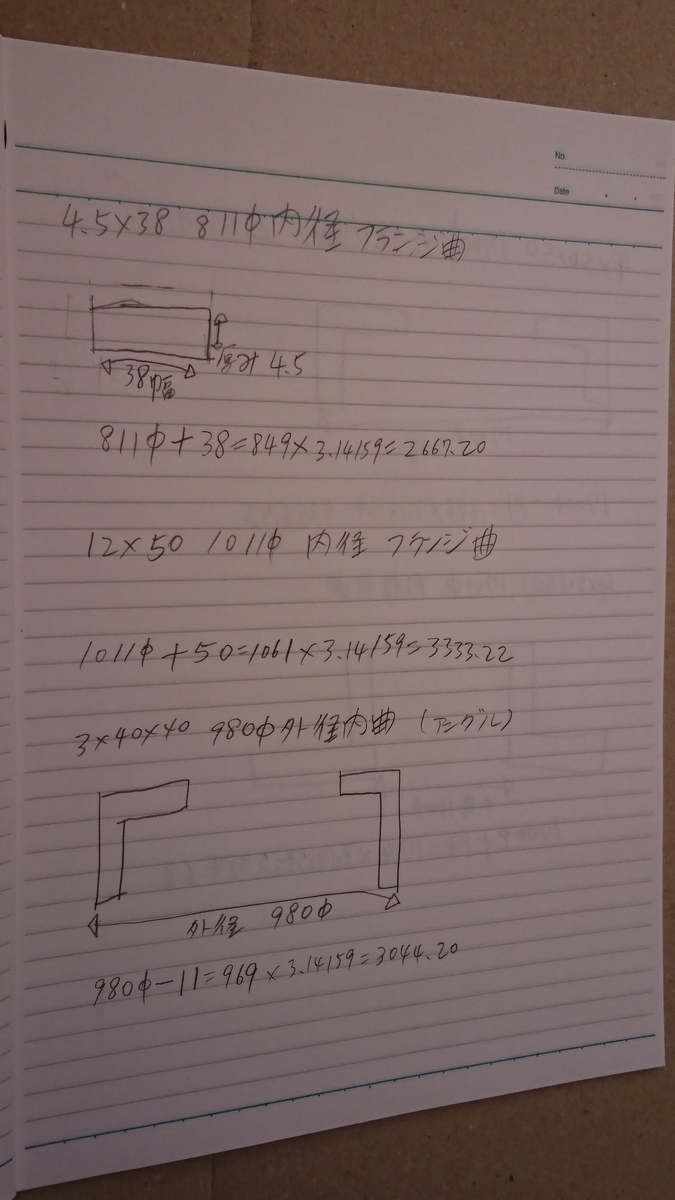 No.
Date
4.5×38 811φ内径 フランジ曲
厚み 4.5
38幅
811φ+38=849×3.14159=2667.20
12×50 1011φ 内径 フランジ曲
1011φ+50=1061×3.14159=3333.22
3×40×40 980φ外径内曲 (アングル)
外径 980φ
980φ-11=969×3.14159=3044.20